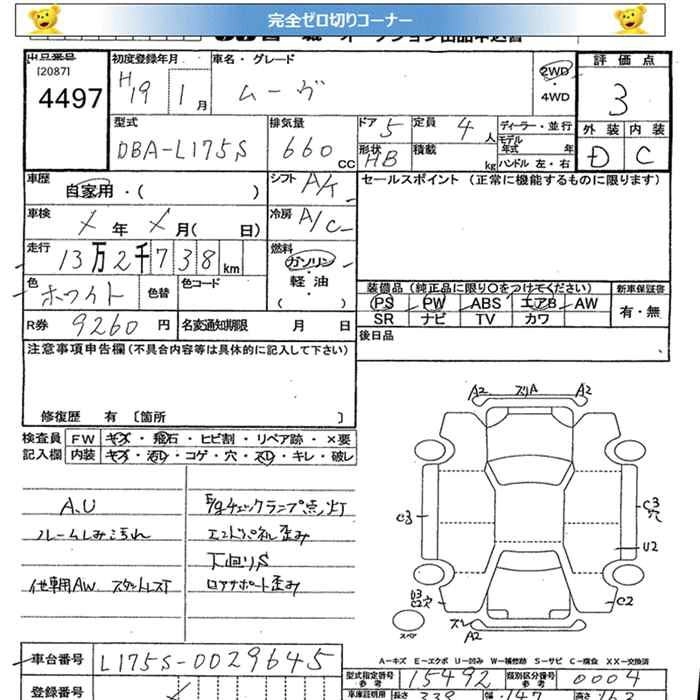 完全ゼロ切りコーナー
出品番号
[2087]
4497
初度登録年月
H19 1月
車名・グレード
ムーヴ
2WD
4WD
評価点
3
外装 内装
D C
型式
DBA-L175S
排気量
660 CC
ドア 5
形状 HB
定員 4人
積載 kg
ディーラー・並行
モデル年式 年
ハンドル 左・右
車歴
自家用・( )
シフト A/T
車検
X年 X月( 日)
冷房 A/C
走行
13万2千738km
燃料
ガソリン
・
軽油
・
( )
色
ホワイト
色替
色コード
R券 9260円
名変通知期限 月 日
セールスポイント (正常に機能するものに限ります)
装備品 (純正品に限り○をつけてください)
PS PW ABS エアB AW
SR ナビ TV カワ
新車保証書
有・無
後日品
注意事項申告欄(不具合内容等は具体的に記入して下さい)
修復歴 有 〔箇所 〕
検査員
記入欄
FW キズ・飛石・ヒビ割・リペア跡・×要
内装 キズ・汚レ・コゲ・穴・スレ・キレ・破レ
A.U
ルームしみこちれ
他車用AW スタットレスT
E/gチェックランプ点灯
エンドパネル歪み
下回りS
ロアサポート歪み
A2 スリA A2
C3
C3
穴
U2
U3
C2
スレ
A2
スペア
A-キズ E-エクボ U-凹み W-補修跡 S-サビ C-腐食 XX-交換済
車台番号 L175S-0029645
型式指定番号
参考
15492
類別区分番号
参考
0004
登録番号
車庫証明用
長さ 339
幅 147
高さ